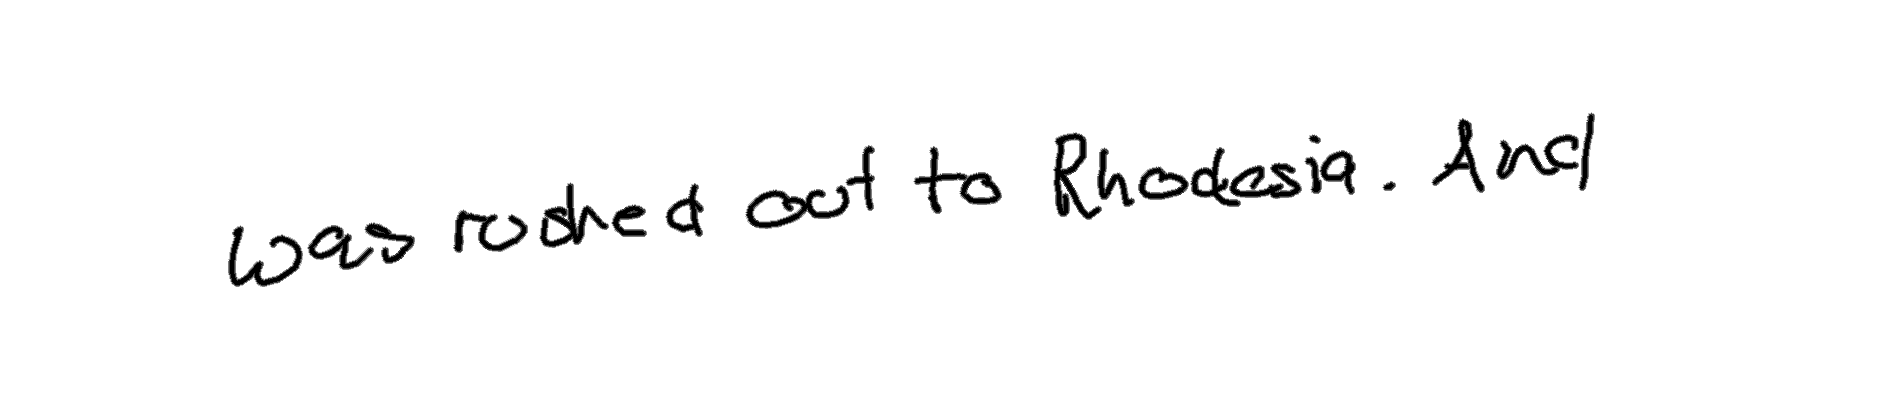 was rushed out to Rhodesia. And